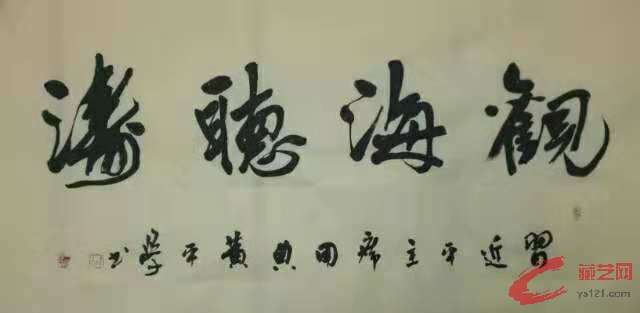 觀海聽濤
習近平主席用典黄平學书
藏艺网
ys121.com